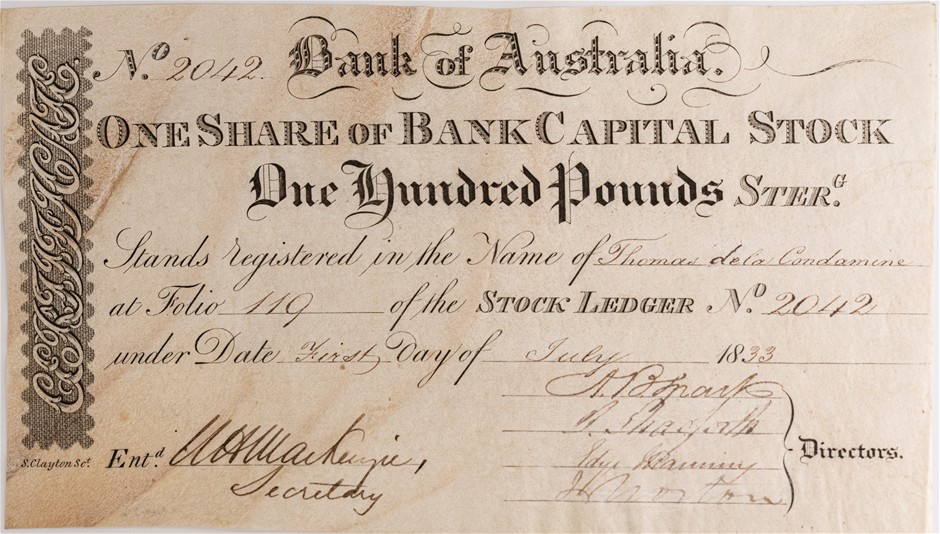 CERTIFICATE
N.º 2042. Bank of Australia.
ONE SHARE OF BANK CAPITAL STOCK
One Hundred Pounds STER.G
Stands registered in the Name of Thomas de la Condamine
at Folio 119 of the STOCK LEDGER Nº. 2042
under Date First Day of July 1833
A. B. Spark
Directors.
S. Clayton Sct.
Ent.d W H MacKenzie,
Secretary